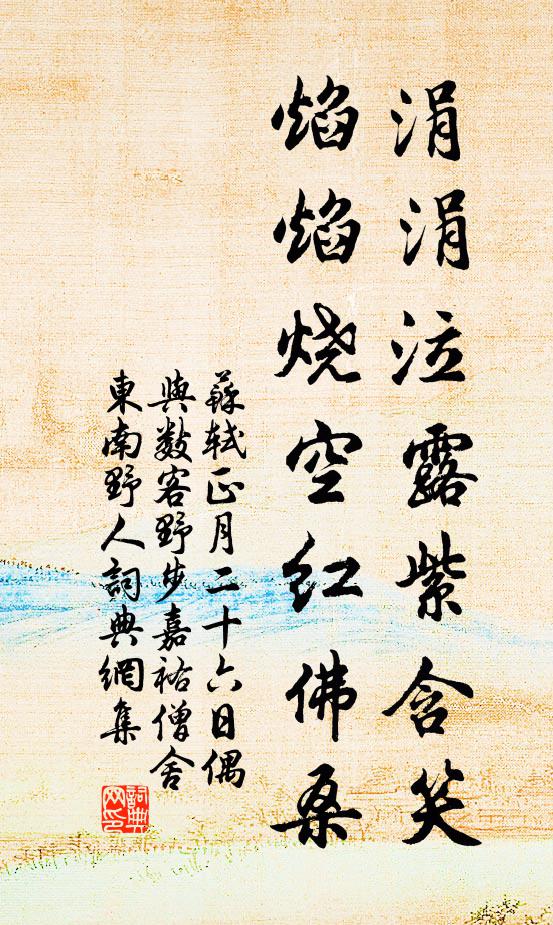 涓涓泣露紫含笑
焰焰烧空红佛桑
蘇軾正月二十六日偶
與數客野步嘉祐僧舍
東南野人詞典網集
詞典网印